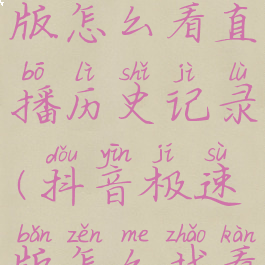 版怎么看直
bō lì shǐ jì lù
播历史记录
dǒu yīn jí sù
(抖音极速
bǎn zěn me zhǎo kàn
版怎么找看